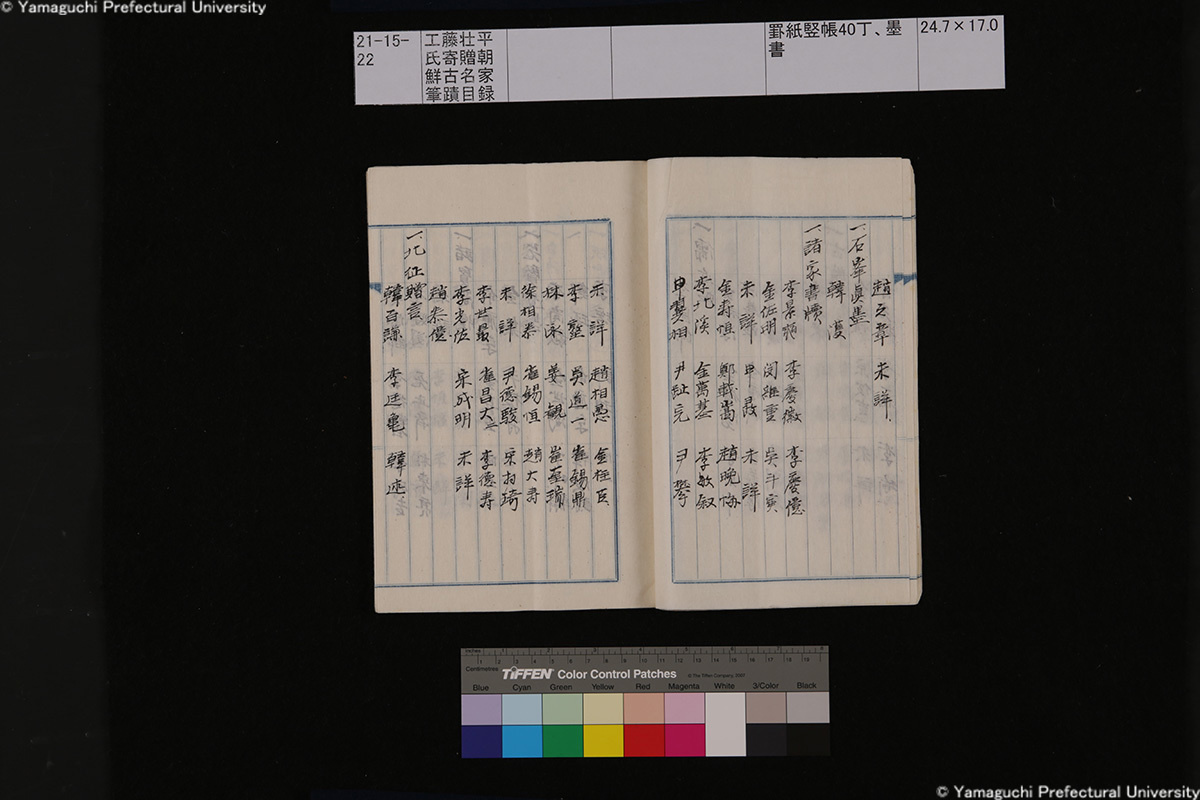 © Yamaguchi Prefectural University
21-15-22
工藤壮平氏寄贈朝鮮古名家筆蹟目録
罫紙竪帳40丁、墨書
24.7×17.0
趙之 未詳
一、石峯真墨
韓濩
一、諸家書牘
李景 李慶徽 李慶億
金佐明 閔維重 呉斗寅
未詳 申晸 未詳
金壽恒 鄭載嵩 趙晩
李北溪 金萬基 李敏叙
申翼相 尹趾完 尹
未詳 趙相愚 金柱臣
李塾 呉道一 崔錫鼎
林泳 姜覿
徐相泰 崔錫恒 趙大壽
未詳 尹德駿 宋相琦
李世最 崔昌大 李德壽
李光佐 宋成明 未詳
趙泰億
一、北征贈言
韓百謙 李廷龜 韓
Centimetres
TIFFEN Color Control Patches
© The Tiffen Company, 2007
Blue Cyan Green Yellow Red Magenta White 3/Color Black
© Yamaguchi Prefectural University